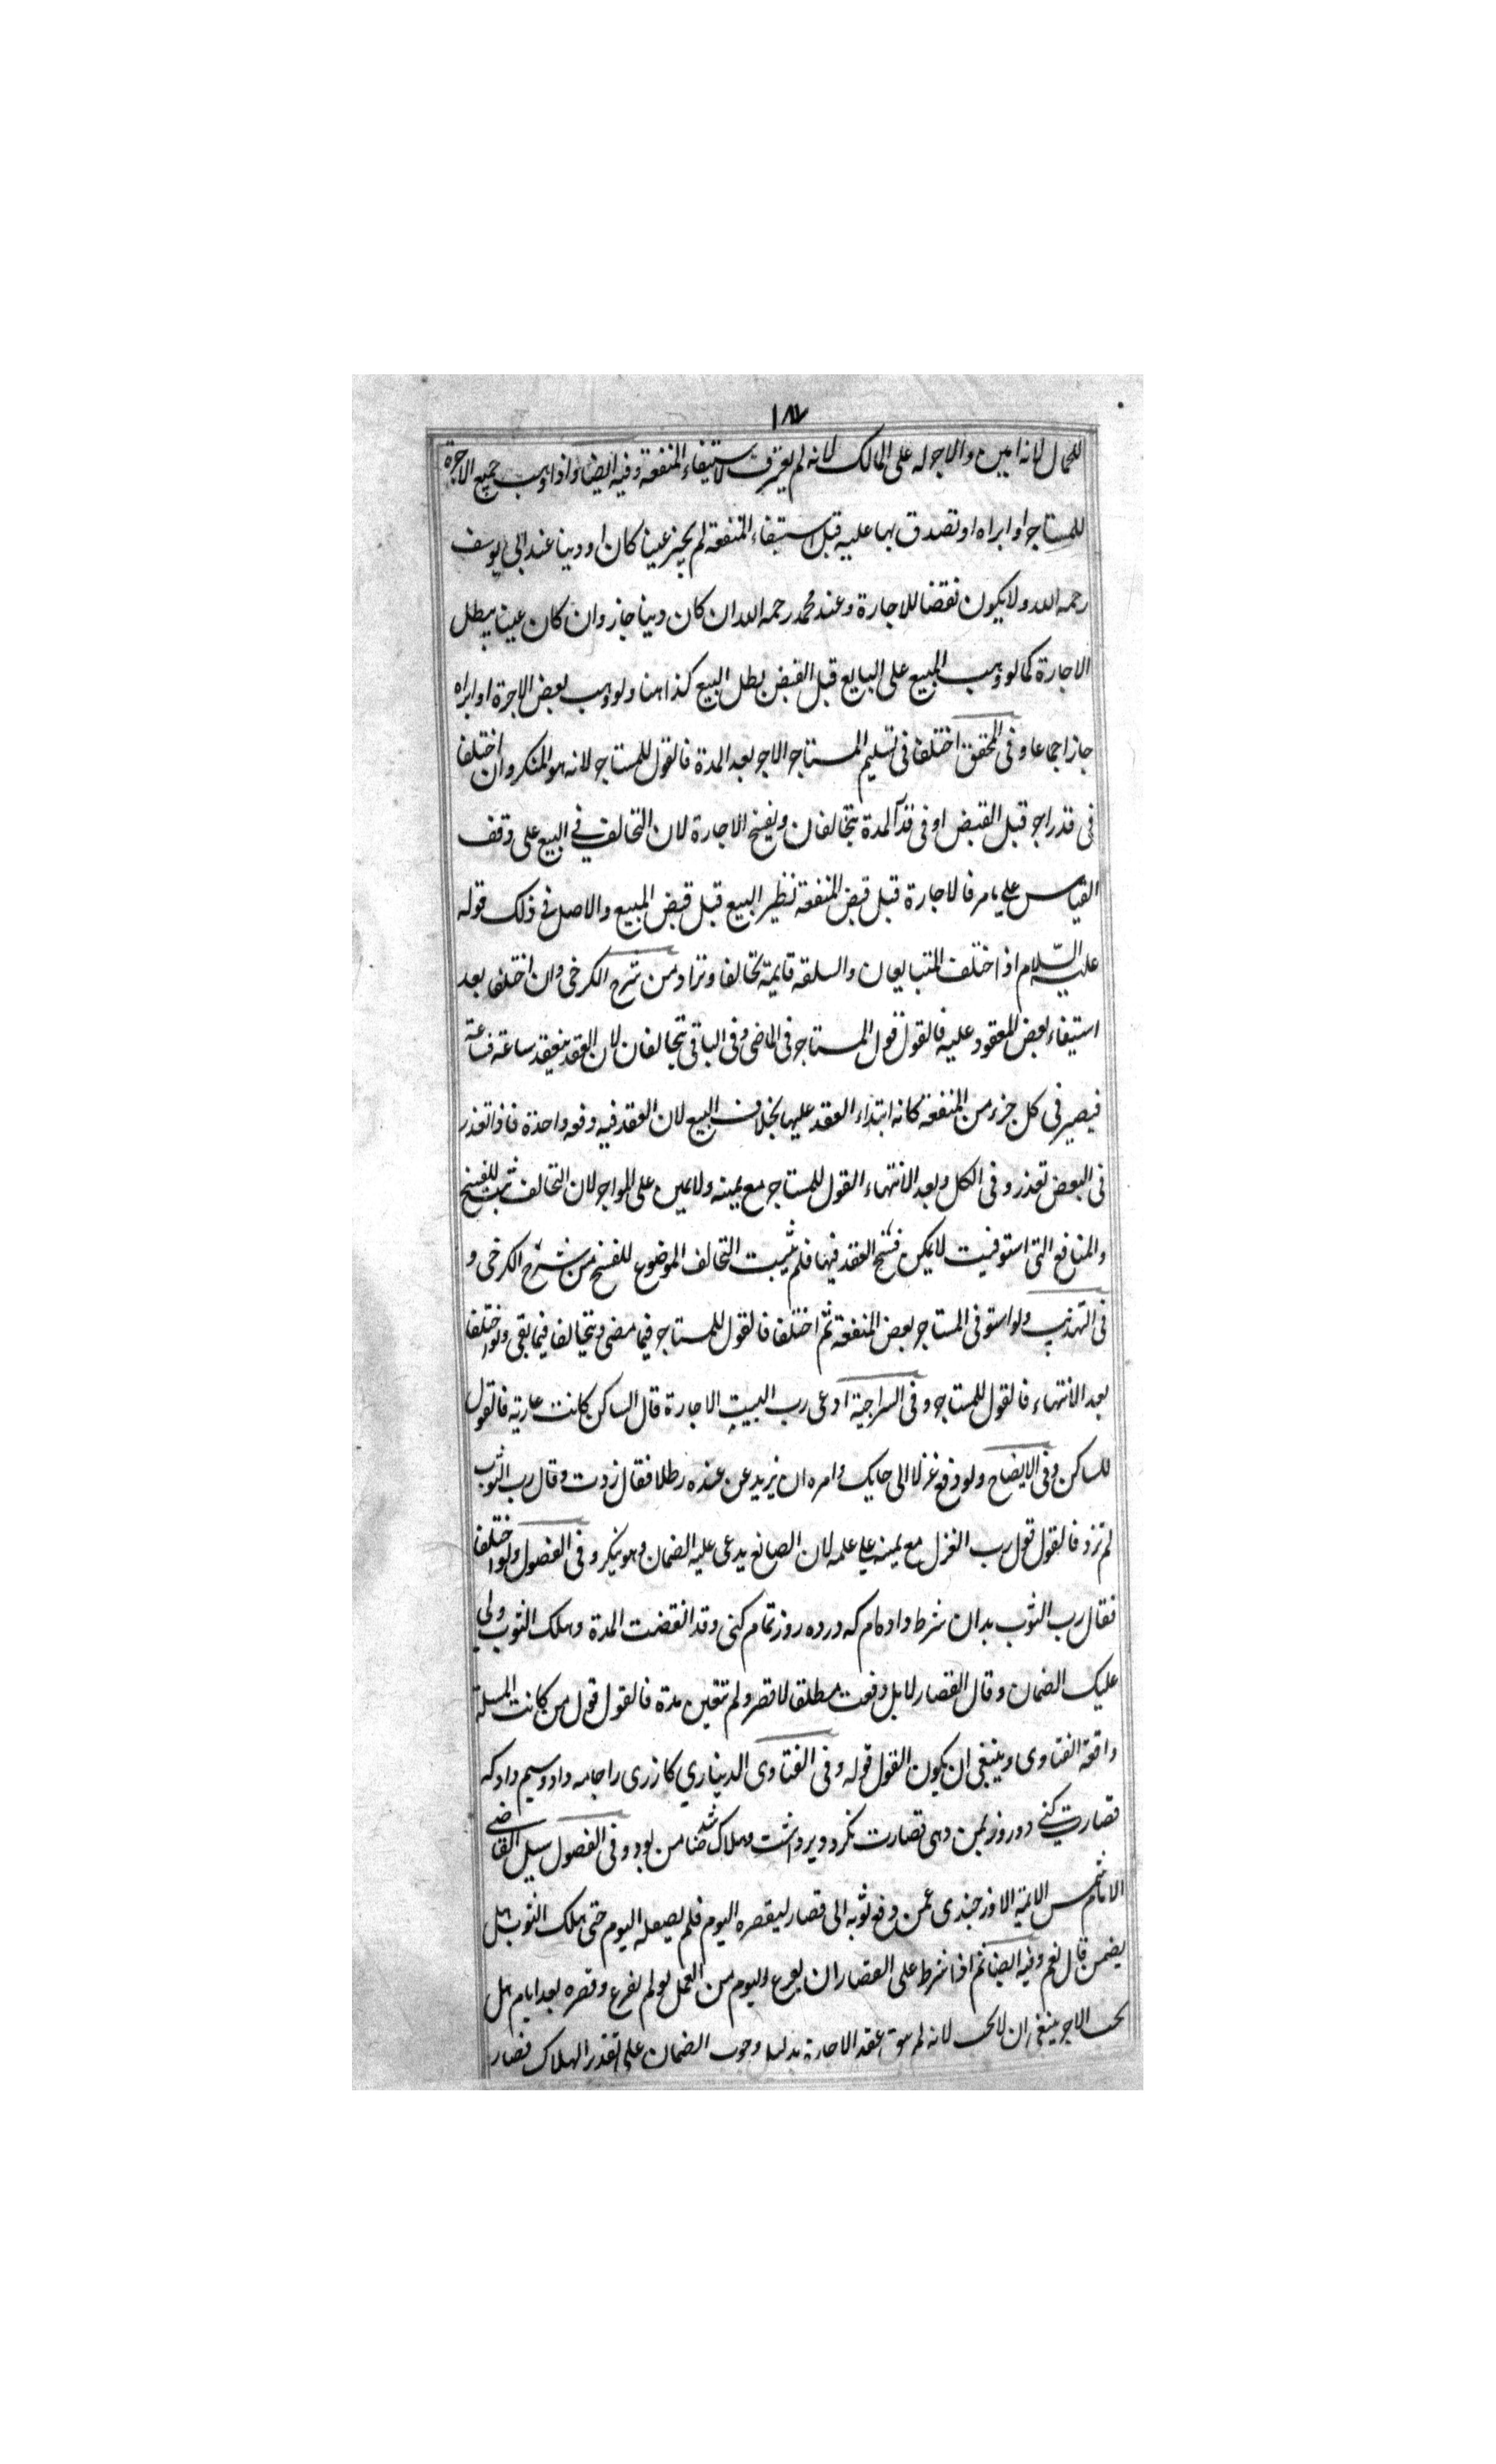 ١٨٧
للحمال لانه امين والاجر له على المالك لانه لم يعترف لاستيفاء المنفعة وفيه ايضا واذا وهب جميع الاجرة
للمستاجر او ابراه او تصدق بها عليه قبل استيفاء المنفعة لم يجز عينا كان او دينا عند ابى يوسف
رحمه الله ولا يكون نقضا للاجارة وعند محمد رحمه الله ان كان دينا جاز وان كان عينا يبطل
الاجارة كما لو وهب المبيع على البايع قبل القبض بطل البيع كذا هنا ولو وهب بعض الاجرة او ابراه
جاز اجماعا وفى المحقق اختلفا فى تسليم المستاجر الاجر بعد المدة فالقول للمستاجر لانه هو المنكر وان اختلفا
فى قدر اجر قبل القبض او فى قدر المدة يتحالفان ويفسخ الاجارة لان التحالف فى البيع على وقف
القياس على ما مر فالاجارة قبل قبض المنفعة نظير البيع قبل قبض المبيع والاصل فى ذلك قوله
عليه السلام اذا اختلف المتبايعان والسلقه قايمة تحالفا وترادا من شرح الكرخى وان اختلفا بعد
استيفاء بعض المعقود عليه فالقول قول المستاجر فى الماضى وفى الباقى يتحالفان لان العقد ينعقد ساعة فساعة
فيصير فى كل جزء من المنفعة كانه ابتداء العقد عليها بخلاف البيع لان العقد فيه دفعه واحدة فاذا تعذر
فى البعض تعذر وفى الكل وبعد الانتهاء القول للمستاجر مع يمينه ولا يمين على المواجر لان التحالف ثبت للفسخ
والمنافع التى استوفيت لا يمكن فسخ العقد فيها فلم يثبت التحالف الموضوع للفسخ من شرح الكرخى و
فى التهذيب ولو استوفى المستاجر بعض المنفعة ثم اختلفا فالقول للمستاجر فيما مضى ويتحالفا فيما بقى ولو اختلفا
بعد الانتهاء فالقول للمستاجر وفى السراجية ادعى رب البيت الاجارة قال الساكن كانت عارية فالقول
للساكن وفى الايضاح ولو دفع غزلا الى حايك وامره ان يزيد عن عنده رطلا فقال زدت وقال رب الثوب
لم تزد فالقول قول رب الغزل مع يمينه على علمه لان الصانع يدعى عليه الضمان وهو ينكر وفى الفصول ولو اختلفا
فقال رب الثوب بدان شرط داده ام كه در ده روز تمام كنى وقد انقضت المدة وهلك الثوب ولى
عليك الضمان وقال القصار لا بل دفعت مطلقا لاقصر ولم تتعين مدة فالقول قول من كانت المسلة
واقعة الفتاوى وينبغى ان يكون القول قوله وفى الفتاوى الدينارى كازرى را جامه داد وسيم داد كه
قصارت كنى دو روز بمن دهى قصارت نكرد و برداشت وهلاك شد ضامن بود وفى الفصول سيل القاضى
الامام شمس الايمة الاوزجندى عمن دفع ثوبه الى قصار ليقصره اليوم فلم يصعله اليوم حتى هلك الثوب هل
يضمن قال نعم وفيه ايضا ثم اذا شرط على القصار ان يفرغ اليوم من العمل ولم يفرغ وقصره بعد ايام هل
يجب الاجر ينبغى ان لا يجب لانه لم يبق عقد الاجارة بدليل وجوب الضمان على تقدير الهلاك فصار